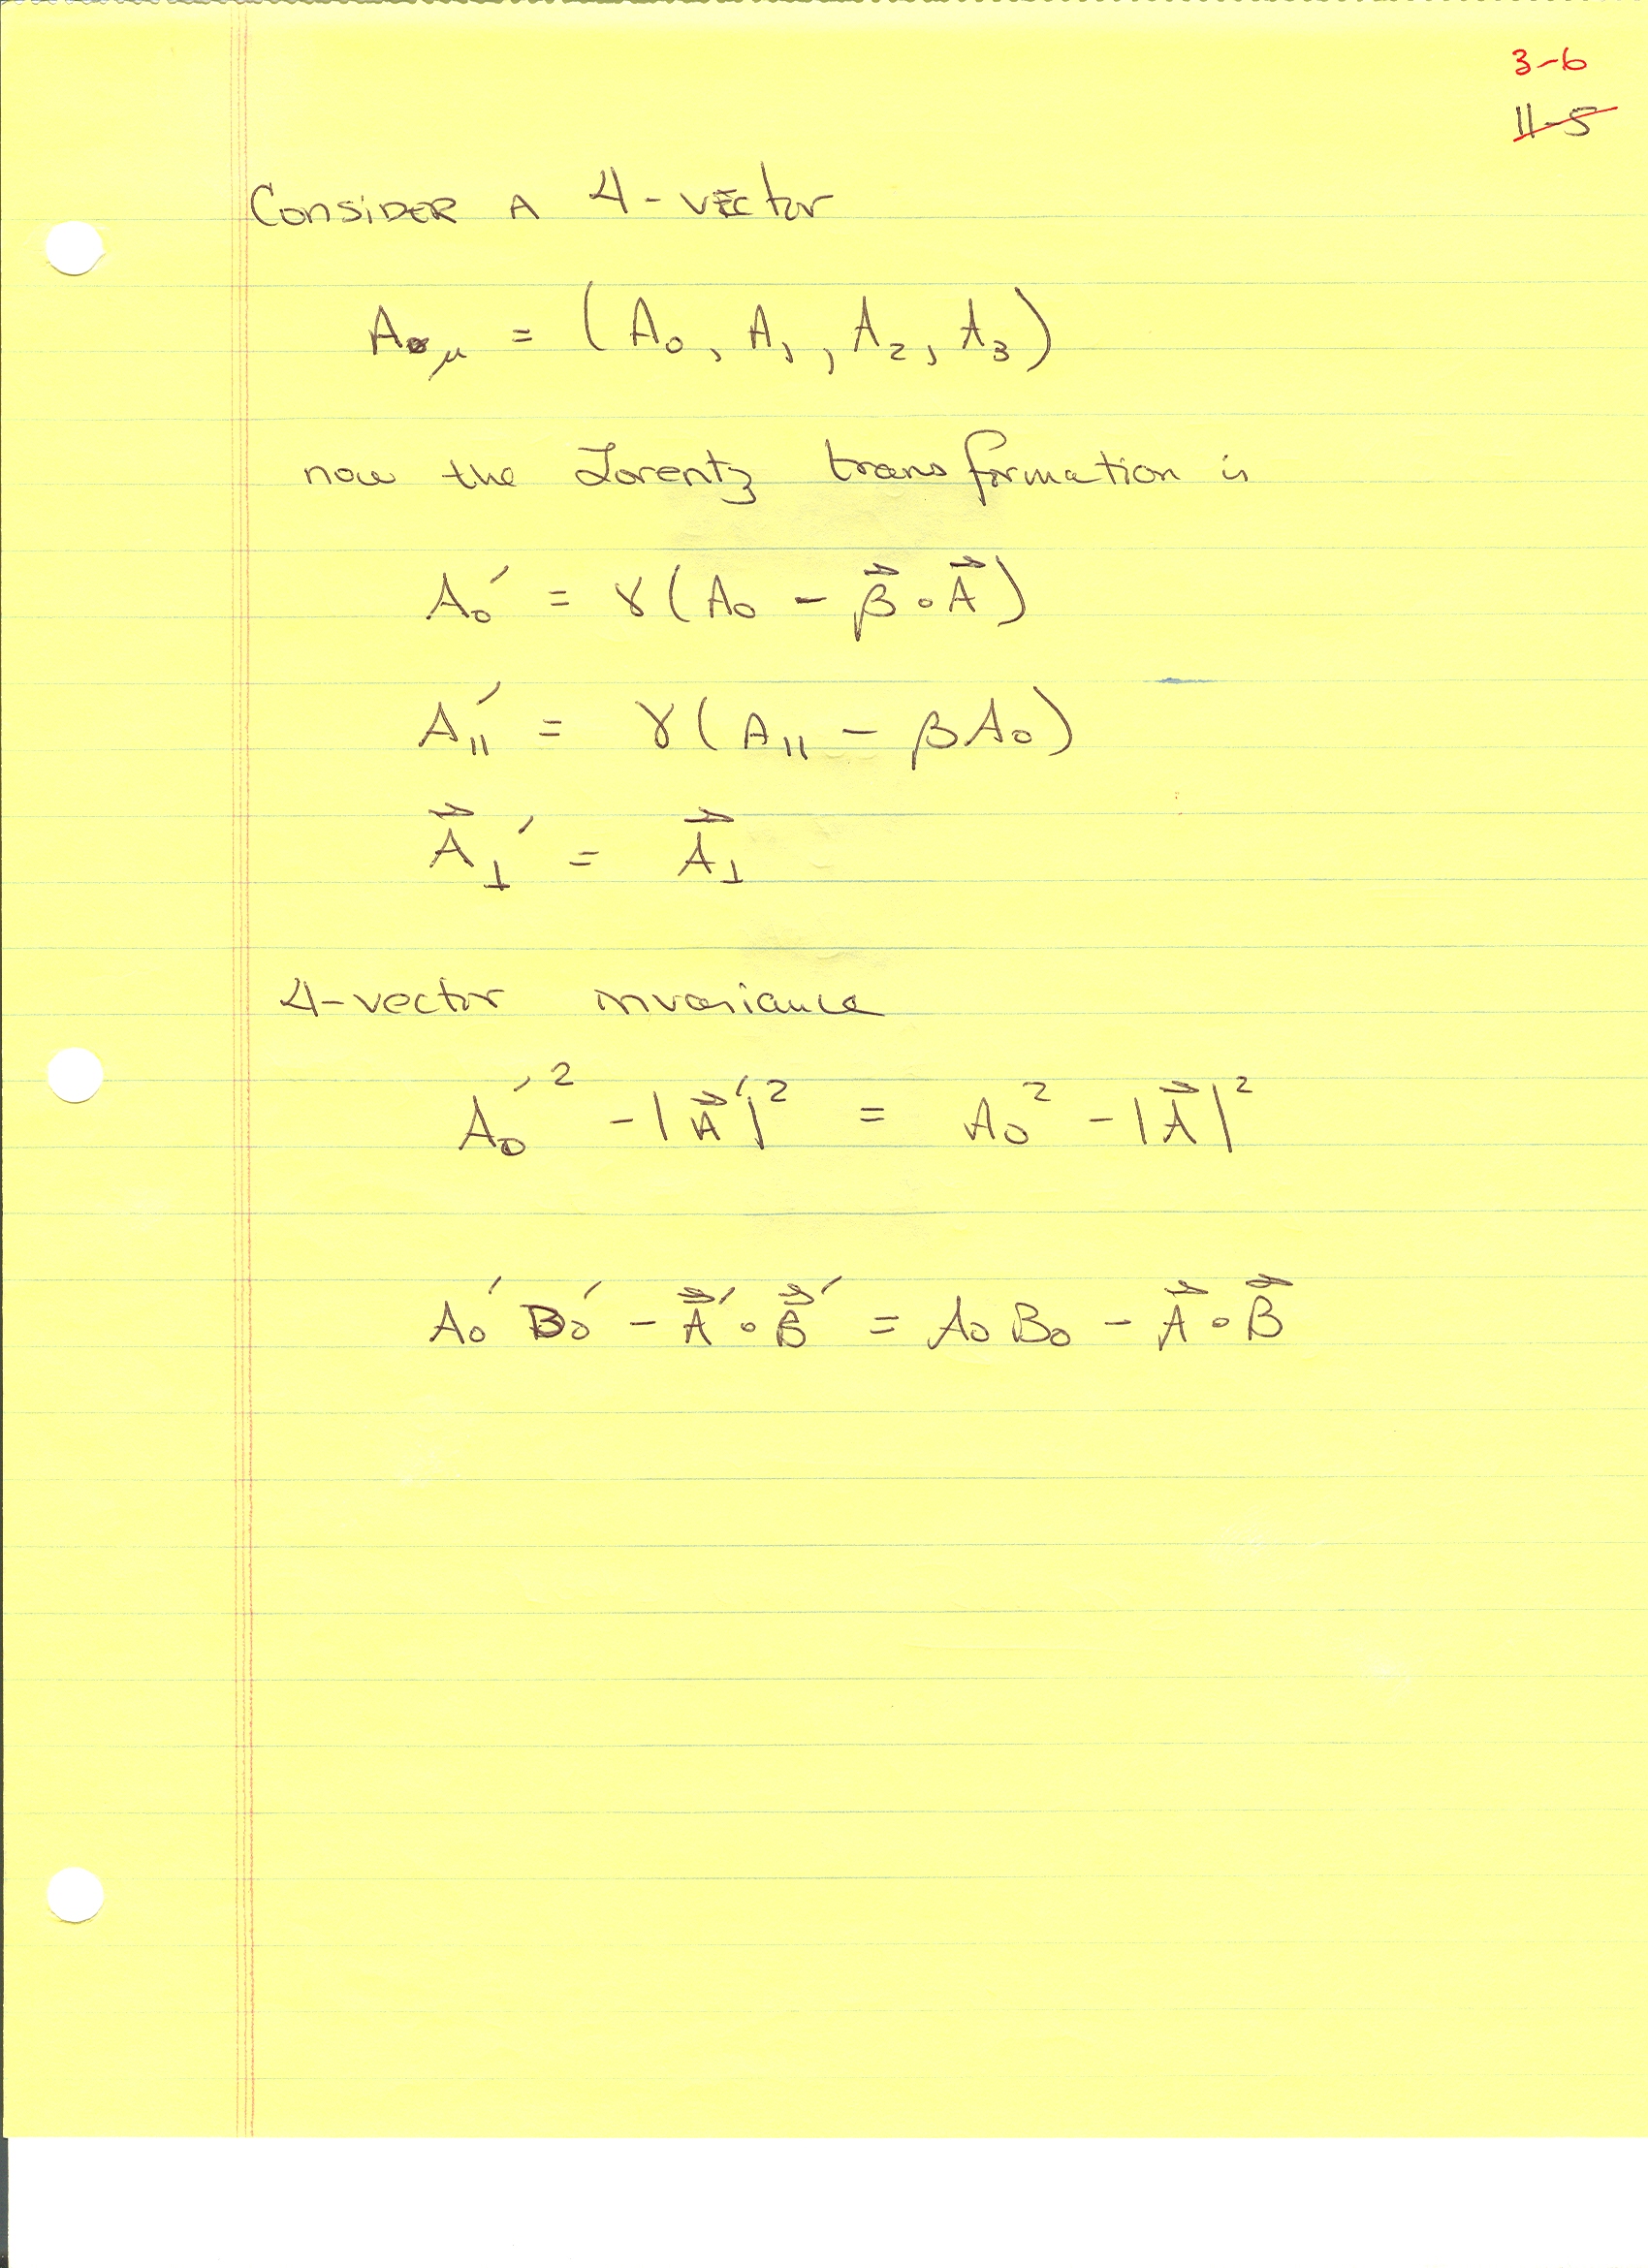 3-6
11-5
CONSIDER A 4-VECTOR
Aμ = (A₀, A₁, A₂, A₃)
now the Lorentz transformation is
A₀′ = γ(A₀ − β⃗ ∘ A⃗)
A∥′ = γ(A∥ − βA₀)
A⃗⊥′ = A⃗⊥
4-vector invariance
A₀′² − |A⃗′|² = A₀² − |A⃗|²
A₀′ B₀′ − A⃗′ ∘ B⃗′ = A₀ B₀ − A⃗ ∘ B⃗